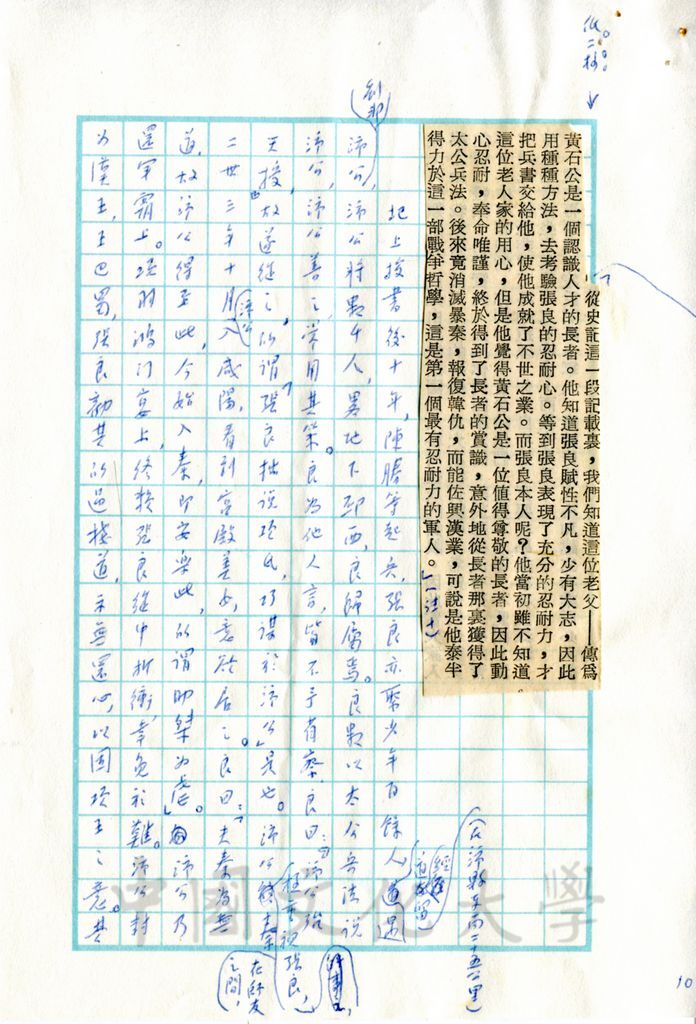 低二格
「從史記這一段記載裏，我們知道這位老父——傳為
黃石公是一個認識人才的長者。他知道張良賦性不凡，少有大志，因此
用種種方法，去考驗張良的忍耐心。等到張良表現了充分的忍耐力，才
把兵書交給他，使他成就了不世之業。而張良本人呢？他當初雖不知道
這位老人家的用心，但是他覺得黃石公是一位值得尊敬的長者，因此動
心忍耐，奉命唯謹，終於得到了長者的賞識，意外地從長者那裏獲得了
太公兵法。後來竟消滅暴秦，報復韓仇，而能佐興漢業，可說是他泰半
得力於這一部戰爭哲學，這是第一個最有忍耐力的軍人。」（註十）
圯上授書後十年，陳勝等起兵，張良亦聚少年百餘人，道遇
（在沛縣東南二十五公里）
（劉邦）
沛公，沛公將數千人，畧地下邳西，良歸屬焉。良數以太公兵法說
沛公，沛公善之，常用其策。良為他人言，皆不予省察，良曰：「沛公殆
天授」，故遂從之，所謂「張良拙說於氏，巧謀於沛公」是也。沛公
極重視張良，
在師友之間，
二世三年十月，沛公入咸陽，看到宮殿美女，意欲居之。良曰：「夫秦為無
道，故沛公得至此，今始入秦，即安樂此，所謂助桀為虐」。沛公乃
還軍霸上。項羽鴻門宴上，終賴張良從中折衝，幸免於難。沛公封
為漢王，王巴蜀，張良勸其所過棧道，示無還心，以固項王之意。其
10
中國文化大學